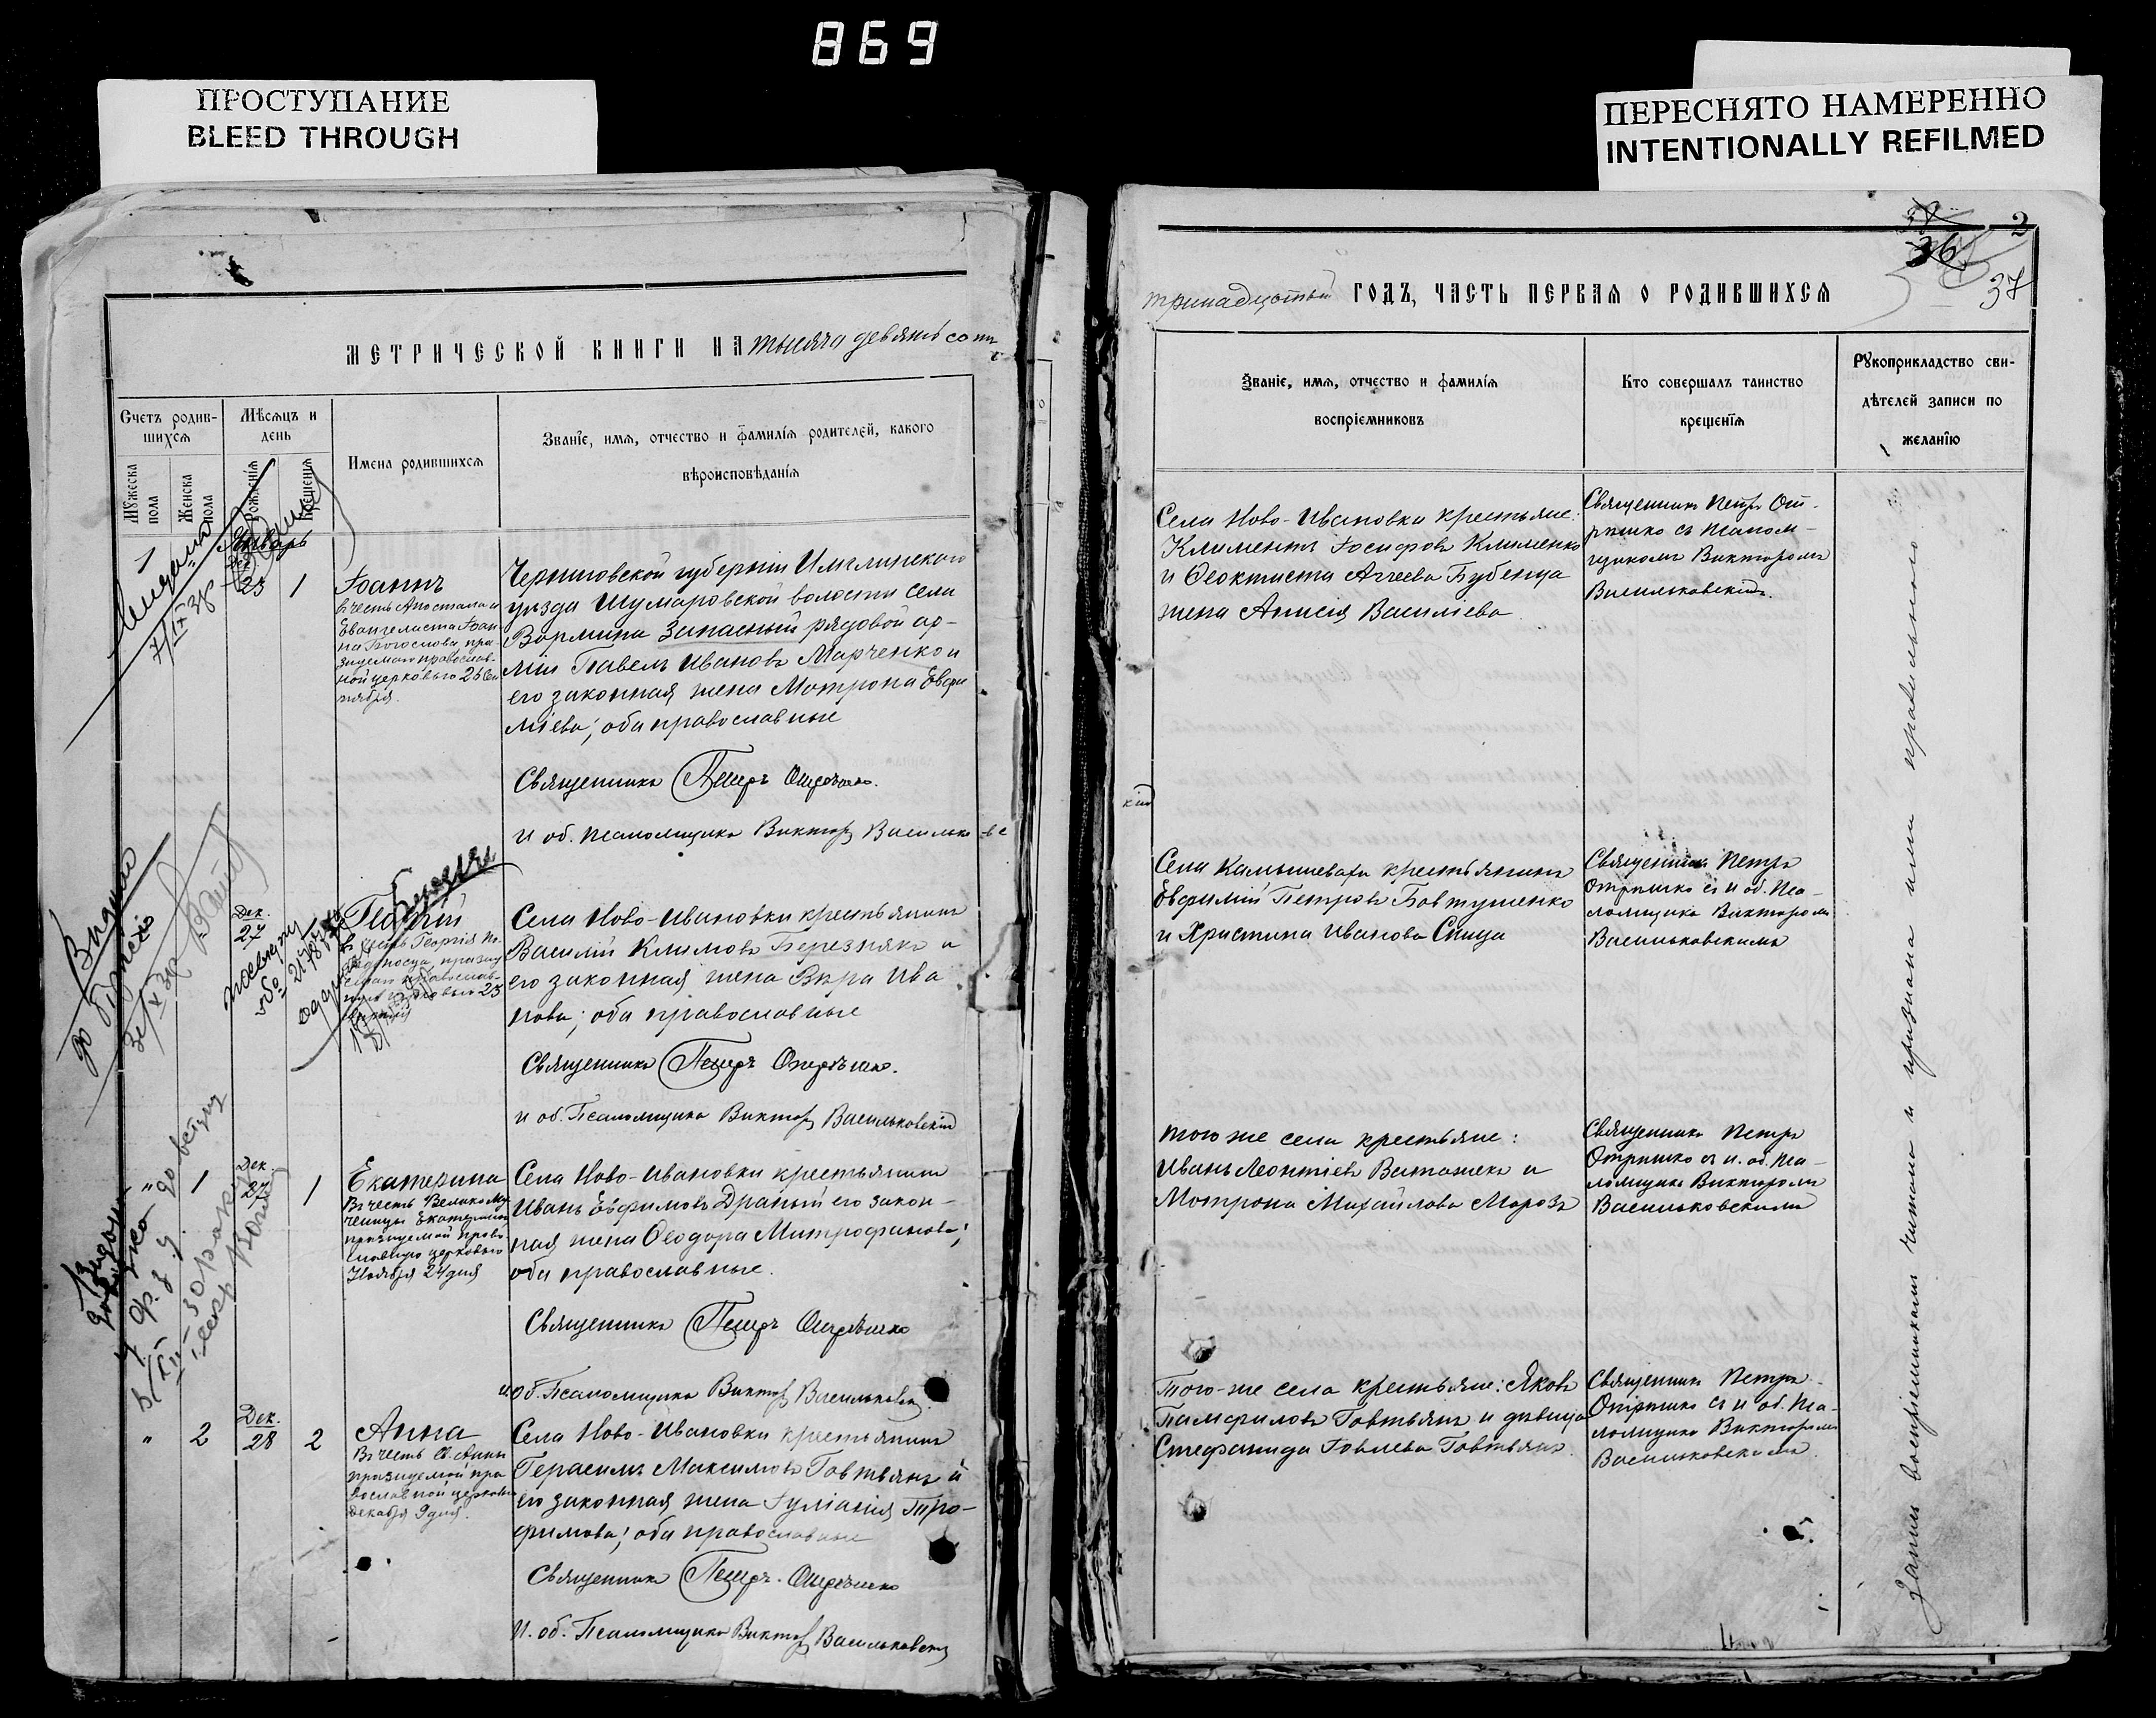 869
ПРОСТУПАНИЕ
BLEED THROUGH
ПЕРЕСНЯТО НАМЕРЕННО
INTENTIONALLY REFILMED
МЕТРИЧЕСКОЙ КНИГИ НА тысяча девятьсотъ
Счетъ родив-
шихся
Мѣсяцъ и
день
Имена родившихся
Званіе, имя, отчество и фамилія родителей, какого
вѣроисповѣданія
Мужеска
пола
Женска
пола
Рожденія
Крещенія
Январь
1
"
Дек.
23
1
Іоаннъ
въ честь Апостола и
Евангелиста Іоан-
на Богослова, пра-
зднуемаго православ-
ной церковью 26 Сен
тября.
Черниговской губерніи Имглинскаго
уѣзда Шумаровской волости села
Вормина Запасный рядовой ар-
міи Павелъ Ивановъ Марченко и
его законная жена Мотрона Евфи
міева; оба православные
Священникъ Петръ Отрѣшко.
И об. псаломщика Викторъ Васильковс
Дек.
27
Георгій
Села Ново-Ивановки крестьянинъ
Василій Климовъ Березнякъ и
его законная жена Вѣра Ива
нова; оба православные
Священникъ Петръ Отрѣшко.
И об. Псаломщика Викторъ Васильковскій
"
1
Дек.
27
1
Екатерина
Въ честь Великому-
ченицы Екатерины
празднуемой право-
славною церковью
Ноября 24 дня
Села Ново-Ивановки крестьянинъ
Иванъ Евфимовъ Драный его закон-
ная жена Ѳеодора Митрофанова;
оба православные.
Священникъ Петръ Отрѣшко
и об. Псаломщика Викторъ Васильковск.
"
2
Дек.
28
2
Анна
Въ честь Св. Анны
празднуемой пра
вославной церковью
Декабря 9 дня.
Села Ново-Ивановки крестьянинъ
Герасимъ Максимовъ Говтвянъ и
его законная жена Іуліанія Тро-
фимова; оба православные
Священникъ Петръ Отрѣшко
И. об. Псаломщика Викторъ Васильковскій
2
36
37
тринадцатый ГОДЪ, ЧАСТЬ ПЕРВАЯ О РОДИВШИХСЯ
Званіе, имя, отчество и фамилія
воспріемниковъ
Кто совершалъ таинство
крещенія
Рукоприкладство сви-
дѣтелей записи по
желанію
Села Ново-Ивановки крестьяне:
Климентъ Іосифовъ Клименко
и Ѳеоктиста Аггеева Бубенца
жена Анисія Василіева
Священникъ Петръ От-
рѣшко съ псалом-
щикомъ Викторомъ
Васильковскимъ.
кій
Села Камышеваха крестьянинъ
Евфимій Петровъ Бовтушенко
и Христина Иванова Спица
Священникъ Петръ
Отрѣшко съ и об. пса-
ломщика Викторомъ
Васильковскимъ
того же села крестьяне:
Иванъ Леонтіевъ Ватажекъ и
Мотрона Михайлова Морозъ
Священникъ Петръ
Отрѣшко съ и. об. пса-
ломщика Викторомъ
Васильковскимъ
Того-же села крестьяне: Яковъ
Памфиловъ Говтвянъ и дѣвица
Стефанида Іовлева Говтвянъ.
Священникъ Петръ
Отрѣшко съ и об. пса-
ломщика Викторомъ
Васильковскимъ.
Запись воспріемникамъ читана и признана ими правильною